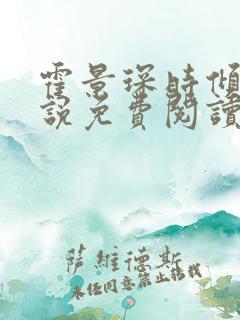 霍景琛時傾
說免費閱讀
薩維德斯
未經同意禁止轉載